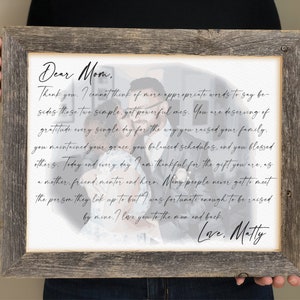 Dear Mom,
Thank you. I cannot think of more appropriate words to say be-
sides those two simple, yet powerful ones. You are deserving of
gratitude every single day for the way you raised your family,
you maintained your grace, you balanced schedules, and you blessed
others. Today and every day I am thankful for the gift you are, as
a mother, friend, mentor and hero. Many people never get to meet
the person they look up to but I was fortunate enough to be raised
by mine. I love you to the moon and back.
Love, Matty